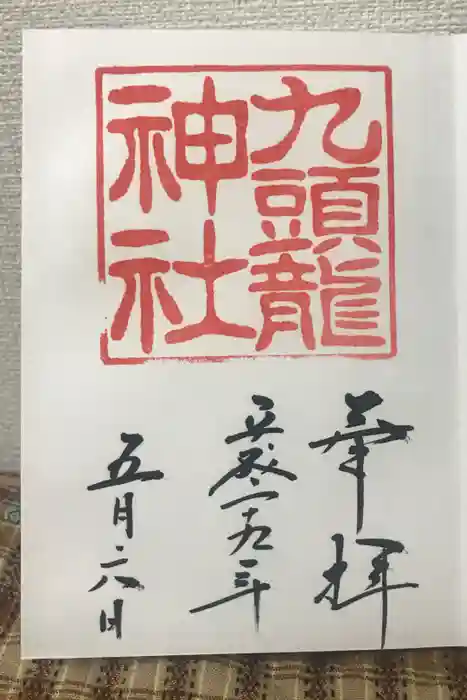 九頭龍
神社
奉拝
平成二十九年
五月六日